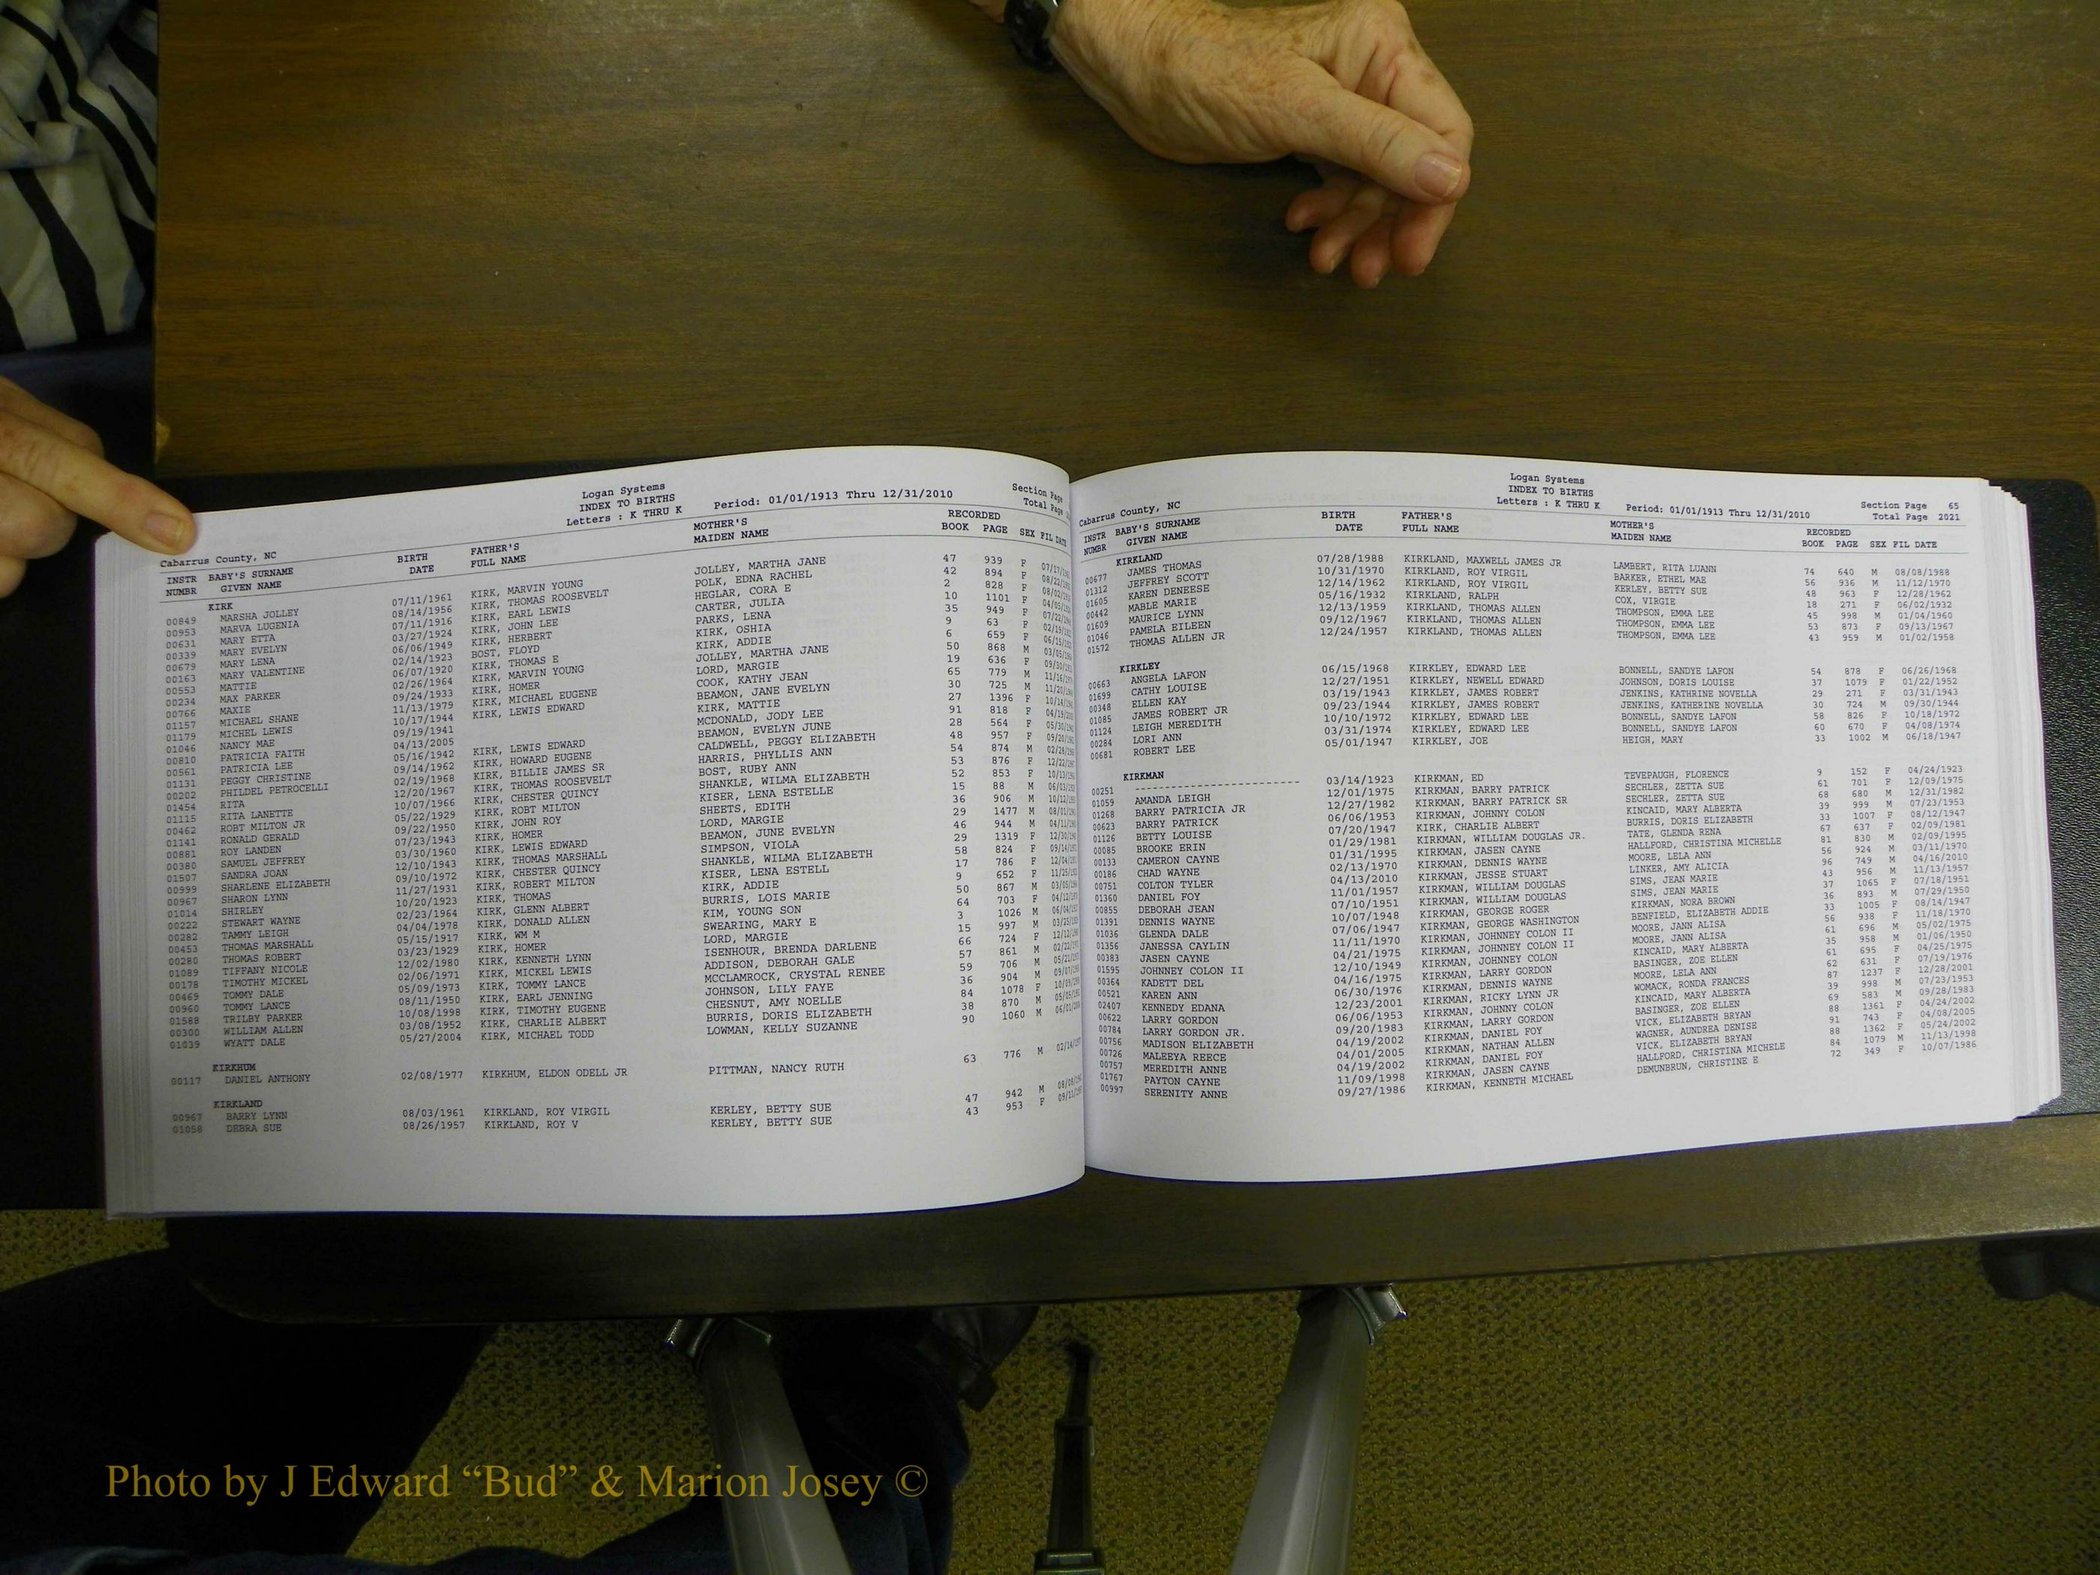 Logan Systems
INDEX TO BIRTHS
Letters : K THRU K Period: 01/01/1913 Thru 12/31/2010 Section Page
Cabarrus County, NC Total Page
INSTR BABY'S SURNAME BIRTH FATHER'S MOTHER'S RECORDED
NUMBR GIVEN NAME DATE FULL NAME MAIDEN NAME BOOK PAGE SEX FIL DATE
KIRK
00849 MARSHA JOLLEY 07/11/1961 KIRK, MARVIN YOUNG JOLLEY, MARTHA JANE 47 939 F
00953 MARVA LUGENIA 08/14/1956 KIRK, THOMAS ROOSEVELT POLK, EDNA RACHEL 42 894 F
00631 MARY ETTA 07/11/1916 KIRK, EARL LEWIS HEGLAR, CORA E 2 828 F
00339 MARY EVELYN 03/27/1924 KIRK, JOHN LEE CARTER, JULIA 10 1101 F
00679 MARY LENA 06/06/1949 KIRK, HERBERT PARKS, LENA 35 949 F
00163 MARY VALENTINE 02/14/1923 BOST, FLOYD KIRK, OSHIA 9 63 F
00553 MATTIE 06/07/1920 KIRK, THOMAS E KIRK, ADDIE 6 659 F
00234 MAX PARKER 02/26/1964 KIRK, MARVIN YOUNG JOLLEY, MARTHA JANE 50 868 M
00766 MAXIE 09/24/1933 KIRK, HOMER LORD, MARGIE 19 636 F
01157 MICHAEL SHANE 11/13/1979 KIRK, MICHAEL EUGENE COOK, KATHY JEAN 65 779 M
01179 MICHEL LEWIS 10/17/1944 KIRK, LEWIS EDWARD BEAMON, JANE EVELYN 30 725 M
01046 NANCY MAE 09/19/1941 KIRK, MATTIE 27 1396 F
00810 PATRICIA FAITH 04/13/2005 MCDONALD, JODY LEE 91 818 F
00561 PATRICIA LEE 05/16/1942 KIRK, LEWIS EDWARD BEAMON, EVELYN JUNE 28 564 F
01131 PEGGY CHRISTINE 09/14/1962 KIRK, HOWARD EUGENE CALDWELL, PEGGY ELIZABETH 48 957 F
00202 PHILDEL PETROCELLI 02/19/1968 KIRK, BILLIE JAMES SR HARRIS, PHYLLIS ANN 54 874 M
01454 RITA 12/20/1967 KIRK, THOMAS ROOSEVELT BOST, RUBY ANN 53 876 F
01115 RITA LANETTE 10/07/1966 KIRK, CHESTER QUINCY SHANKLE, WILMA ELIZABETH 52 853 F
00462 ROBT MILTON JR 05/22/1929 KIRK, ROBT MILTON KISER, LENA ESTELLE 15 88 M
01141 RONALD GERALD 09/22/1950 KIRK, JOHN ROY SHEETS, EDITH 36 906 M
00881 ROY LANDEN 07/23/1943 KIRK, HOMER LORD, MARGIE 29 1477 M
00380 SAMUEL JEFFREY 03/30/1960 KIRK, LEWIS EDWARD BEAMON, JUNE EVELYN 46 944 M
01507 SANDRA JOAN 12/10/1943 KIRK, THOMAS MARSHALL SIMPSON, VIOLA 29 1319 F
00999 SHARLENE ELIZABETH 09/10/1972 KIRK, CHESTER QUINCY SHANKLE, WILMA ELIZABETH 58 824 F
00967 SHARON LYNN 11/27/1931 KIRK, ROBERT MILTON KISER, LENA ESTELL 17 786 F
01014 SHIRLEY 10/20/1923 KIRK, THOMAS KIRK, ADDIE 9 652 F
00222 STEWART WAYNE 02/23/1964 KIRK, GLENN ALBERT BURRIS, LOIS MARIE 50 867 M
00282 TAMMY LEIGH 04/04/1978 KIRK, DONALD ALLEN KIM, YOUNG SON 64 703 F
00453 THOMAS MARSHALL 05/15/1917 KIRK, WM M SWEARING, MARY E 3 1026 M
00280 THOMAS ROBERT 03/23/1929 KIRK, HOMER LORD, MARGIE 15 997 M
01089 TIFFANY NICOLE 12/02/1980 KIRK, KENNETH LYNN ISENHOUR, BRENDA DARLENE 66 724 F
00178 TIMOTHY MICKEL 02/06/1971 KIRK, MICKEL LEWIS ADDISON, DEBORAH GALE 57 861 M
00469 TOMMY DALE 05/09/1973 KIRK, TOMMY LANCE MCCLAMROCK, CRYSTAL RENEE 59 706 M
00960 TOMMY LANCE 08/11/1950 KIRK, EARL JENNING JOHNSON, LILY FAYE 36 904 M
01588 TRILBY PARKER 10/08/1998 KIRK, TIMOTHY EUGENE CHESNUT, AMY NOELLE 84 1078 F
00300 WILLIAM ALLEN 03/08/1952 KIRK, CHARLIE ALBERT BURRIS, DORIS ELIZABETH 38 870 M
01039 WYATT DALE 05/27/2004 KIRK, MICHAEL TODD LOWMAN, KELLY SUZANNE 90 1060 M
KIRKHUM
00117 DANIEL ANTHONY 02/08/1977 KIRKHUM, ELDON ODELL JR PITTMAN, NANCY RUTH 63 776 M
KIRKLAND
00967 BARRY LYNN 08/03/1961 KIRKLAND, ROY VIRGIL KERLEY, BETTY SUE 47 942 M
01058 DEBRA SUE 08/26/1957 KIRKLAND, ROY V KERLEY, BETTY SUE 43 953 F
Logan Systems
INDEX TO BIRTHS
Letters : K THRU K Period: 01/01/1913 Thru 12/31/2010 Section Page 65
Cabarrus County, NC Total Page 2021
INSTR BABY'S SURNAME BIRTH FATHER'S MOTHER'S RECORDED
NUMBR GIVEN NAME DATE FULL NAME MAIDEN NAME BOOK PAGE SEX FIL DATE
KIRKLAND
00677 JAMES THOMAS 07/28/1988 KIRKLAND, MAXWELL JAMES JR LAMBERT, RITA LUANN 74 640 M 08/08/1988
01312 JEFFREY SCOTT 10/31/1970 KIRKLAND, ROY VIRGIL BARKER, ETHEL MAE 56 936 M 11/12/1970
01605 KAREN DENEESE 12/14/1962 KIRKLAND, ROY VIRGIL KERLEY, BETTY SUE 48 963 F 12/28/1962
00442 MABLE MARIE 05/16/1932 KIRKLAND, RALPH COX, VIRGIE 18 271 F 06/02/1932
01609 MAURICE LYNN 12/13/1959 KIRKLAND, THOMAS ALLEN THOMPSON, EMMA LEE 45 998 M 01/04/1960
01046 PAMELA EILEEN 09/12/1967 KIRKLAND, THOMAS ALLEN THOMPSON, EMMA LEE 53 873 F 09/13/1967
01572 THOMAS ALLEN JR 12/24/1957 KIRKLAND, THOMAS ALLEN THOMPSON, EMMA LEE 43 959 M 01/02/1958
KIRKLEY
00663 ANGELA LAFON 06/15/1968 KIRKLEY, EDWARD LEE BONNELL, SANDYE LAFON 54 878 F 06/26/1968
01699 CATHY LOUISE 12/27/1951 KIRKLEY, NEWELL EDWARD JOHNSON, DORIS LOUISE 37 1079 F 01/22/1952
00348 ELLEN KAY 03/19/1943 KIRKLEY, JAMES ROBERT JENKINS, KATHRINE NOVELLA 29 271 F 03/31/1943
01085 JAMES ROBERT JR 09/23/1944 KIRKLEY, JAMES ROBERT JENKINS, KATHERINE NOVELLA 30 724 M 09/30/1944
01124 LEIGH MEREDITH 10/10/1972 KIRKLEY, EDWARD LEE BONNELL, SANDYE LAFON 58 826 F 10/18/1972
00284 LORI ANN 03/31/1974 KIRKLEY, EDWARD LEE BONNELL, SANDYE LAFON 60 670 F 04/08/1974
00681 ROBERT LEE 05/01/1947 KIRKLEY, JOE HEIGH, MARY 33 1002 M 06/18/1947
KIRKMAN
00251 -------------------------- 03/14/1923 KIRKMAN, ED TEVEPAUGH, FLORENCE 9 152 F 04/24/1923
01059 AMANDA LEIGH 12/01/1975 KIRKMAN, BARRY PATRICK SECHLER, ZETTA SUE 61 701 F 12/09/1975
01268 BARRY PATRICIA JR 12/27/1982 KIRKMAN, BARRY PATRICK SR SECHLER, ZETTA SUE 68 680 M 12/31/1982
00623 BARRY PATRICK 06/06/1953 KIRKMAN, JOHNNY COLON KINCAID, MARY ALBERTA 39 999 M 07/23/1953
01126 BETTY LOUISE 07/20/1947 KIRK, CHARLIE ALBERT BURRIS, DORIS ELIZABETH 33 1007 F 08/12/1947
00085 BROOKE ERIN 01/29/1981 KIRKMAN, WILLIAM DOUGLAS JR. TATE, GLENDA RENA 67 637 F 02/09/1981
00133 CAMERON CAYNE 01/31/1995 KIRKMAN, JASEN CAYNE HALLFORD, CHRISTINA MICHELLE 81 830 M 02/09/1995
00186 CHAD WAYNE 02/13/1970 KIRKMAN, DENNIS WAYNE MOORE, LELA ANN 56 924 M 03/11/1970
00751 COLTON TYLER 04/13/2010 KIRKMAN, JESSE STUART LINKER, AMY ALICIA 96 749 M 04/16/2010
01360 DANIEL FOY 11/01/1957 KIRKMAN, WILLIAM DOUGLAS SIMS, JEAN MARIE 43 956 M 11/13/1957
00855 DEBORAH JEAN 07/10/1951 KIRKMAN, WILLIAM DOUGLAS SIMS, JEAN MARIE 37 1065 F 07/18/1951
01391 DENNIS WAYNE 10/07/1948 KIRKMAN, GEORGE ROGER KIRKMAN, NORA BROWN 36 893 M 07/29/1950
01036 GLENDA DALE 07/06/1947 KIRKMAN, GEORGE WASHINGTON BENFIELD, ELIZABETH ADDIE 33 1005 F 08/14/1947
01356 JANESSA CAYLIN 11/11/1970 KIRKMAN, JOHNNEY COLON II MOORE, JANN ALISA 56 938 F 11/18/1970
00383 JASEN CAYNE 04/21/1975 KIRKMAN, JOHNNEY COLON II MOORE, JANN ALISA 61 696 M 05/02/1975
01595 JOHNNEY COLON II 12/10/1949 KIRKMAN, JOHNNEY COLON KINCAID, MARY ALBERTA 35 958 M 01/06/1950
00364 KADETT DEL 04/16/1975 KIRKMAN, LARRY GORDON BASINGER, ZOE ELLEN 61 695 F 04/25/1975
00521 KAREN ANN 06/30/1976 KIRKMAN, DENNIS WAYNE MOORE, LELA ANN 62 631 F 07/19/1976
02407 KENNEDY EDANA 12/23/2001 KIRKMAN, RICKY LYNN JR WOMACK, RONDA FRANCES 87 1237 F 12/28/2001
00622 LARRY GORDON 06/06/1953 KIRKMAN, JOHNNY COLON KINCAID, MARY ALBERTA 39 998 M 07/23/1953
00784 LARRY GORDON JR. 09/20/1983 KIRKMAN, LARRY GORDON BASINGER, ZOE ELLEN 69 583 M 09/28/1983
00756 MADISON ELIZABETH 04/19/2002 KIRKMAN, DANIEL FOY VICK, ELIZABETH BRYAN 88 1361 F 04/24/2002
00726 MALEEYA REECE 04/01/2005 KIRKMAN, NATHAN ALLEN WAGNER, AUNDREA DENISE 91 743 F 04/08/2005
00757 MEREDITH ANNE 04/19/2002 KIRKMAN, DANIEL FOY VICK, ELIZABETH BRYAN 88 1362 F 05/24/2002
01767 PAYTON CAYNE 11/09/1998 KIRKMAN, JASEN CAYNE HALLFORD, CHRISTINA MICHELE 84 1079 M 11/13/1998
00997 SERENITY ANNE 09/27/1986 KIRKMAN, KENNETH MICHAEL DEMUNBRUN, CHRISTINE E 72 349 F 10/07/1986
Photo by J Edward “Bud” & Marion Josey ©